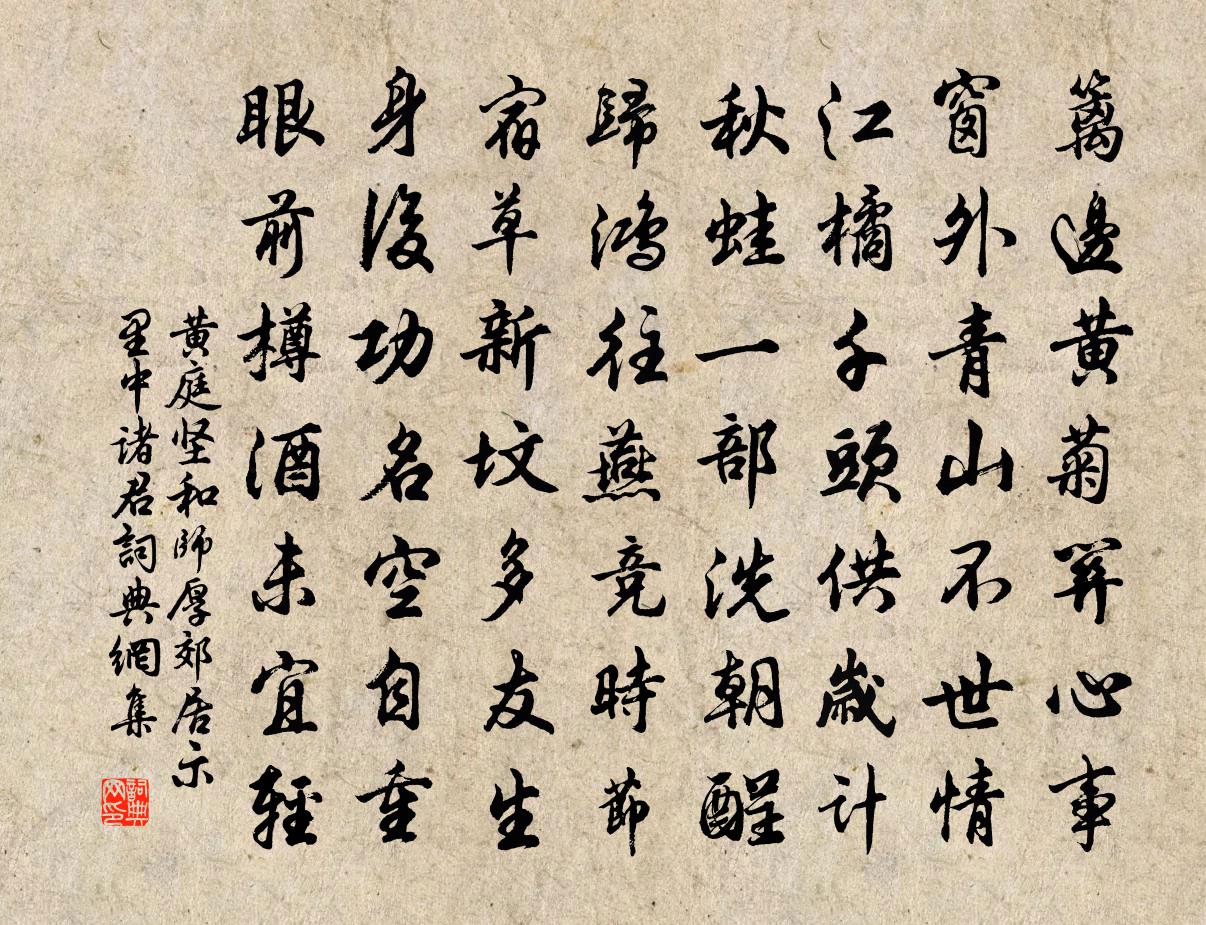 籬邊黄菊關心事
窗外青山不世情
江橘千頭供歲計
秋蛙一部洗朝酲
歸鴻往燕競時節
宿草新墳多友生
身後功名空自重
眼前樽酒未宜輕
黄庭坚和師厚郊居示
里中诸君詞典網集
詞典网印